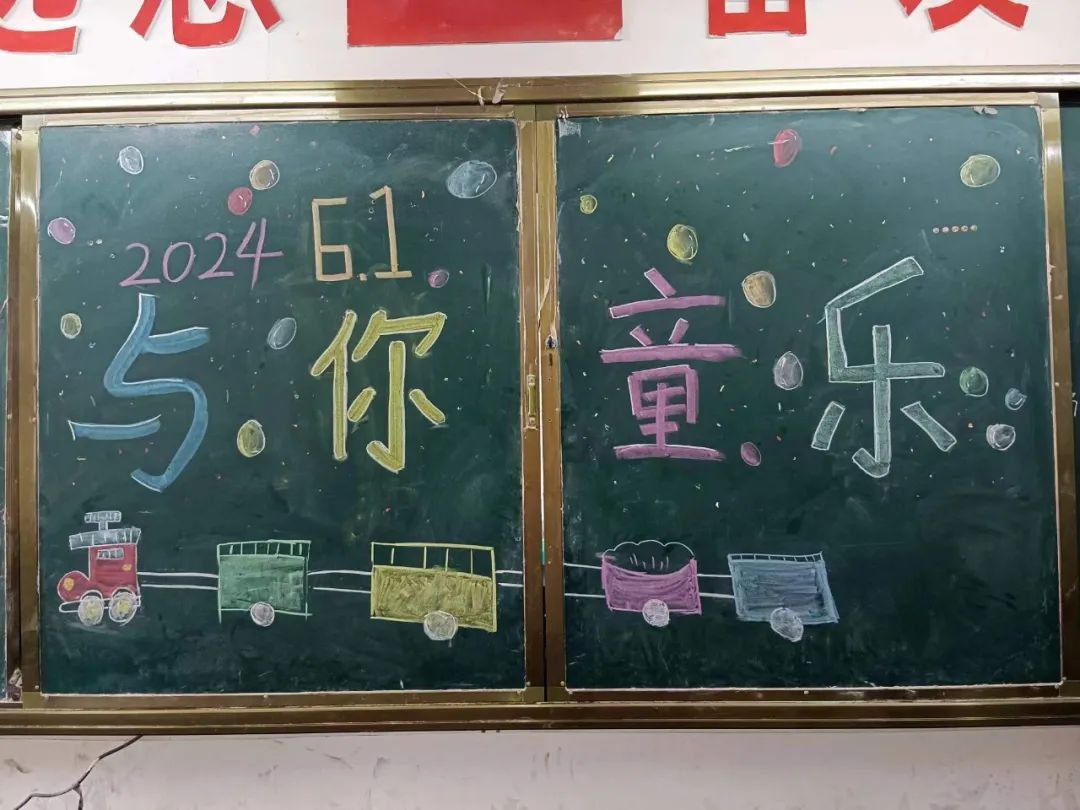 2024 6.1
与你童乐